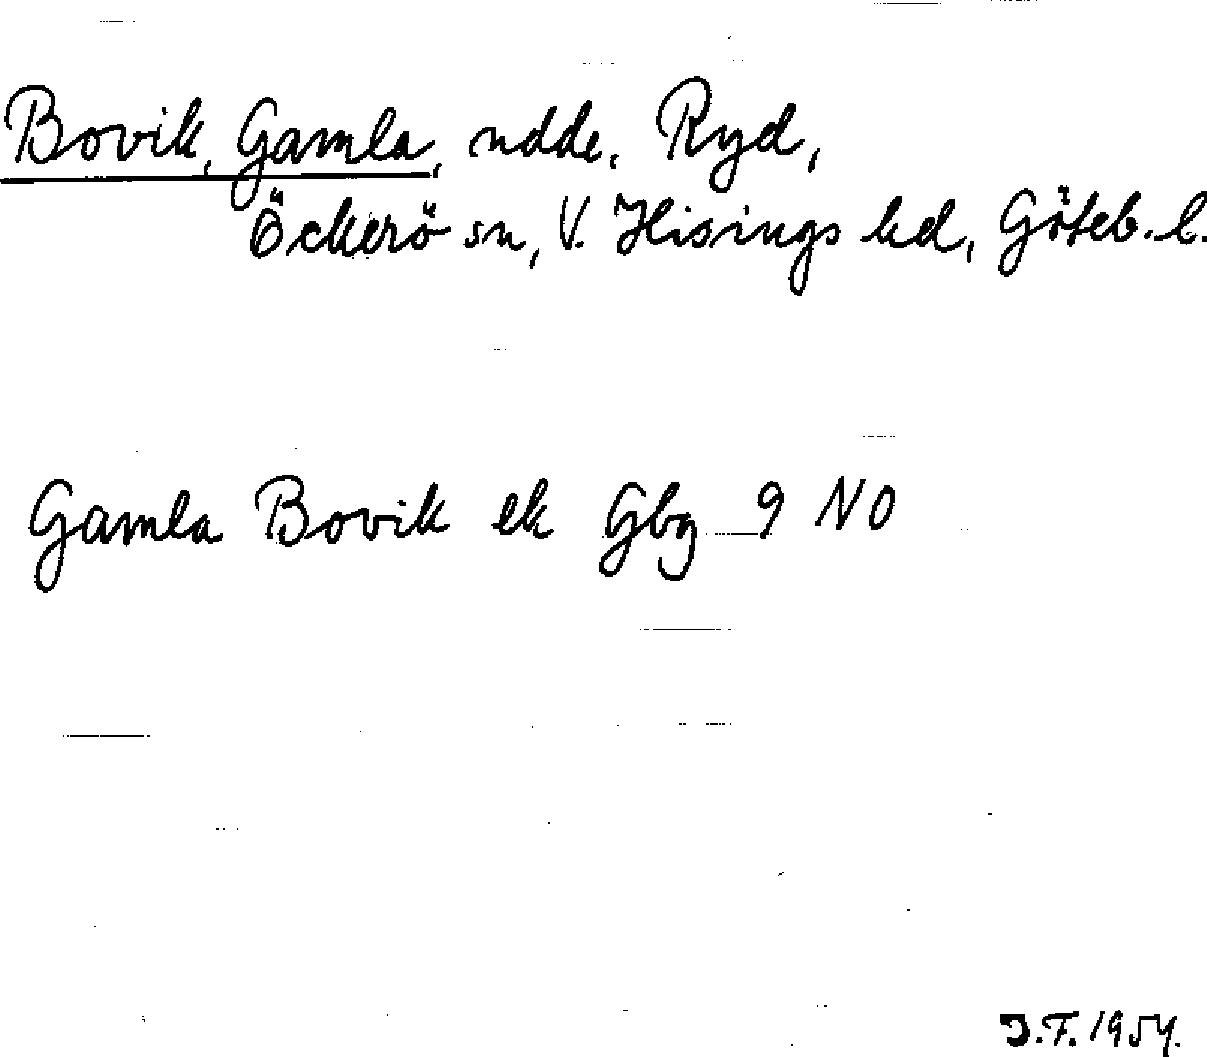 Bovik, Gamla, ndde, Ryd,
Öckerö sn, V. Hisings hd, Göteb. l.
Gamla Bovik ek Gbg 9 NO
J.F. 1954.